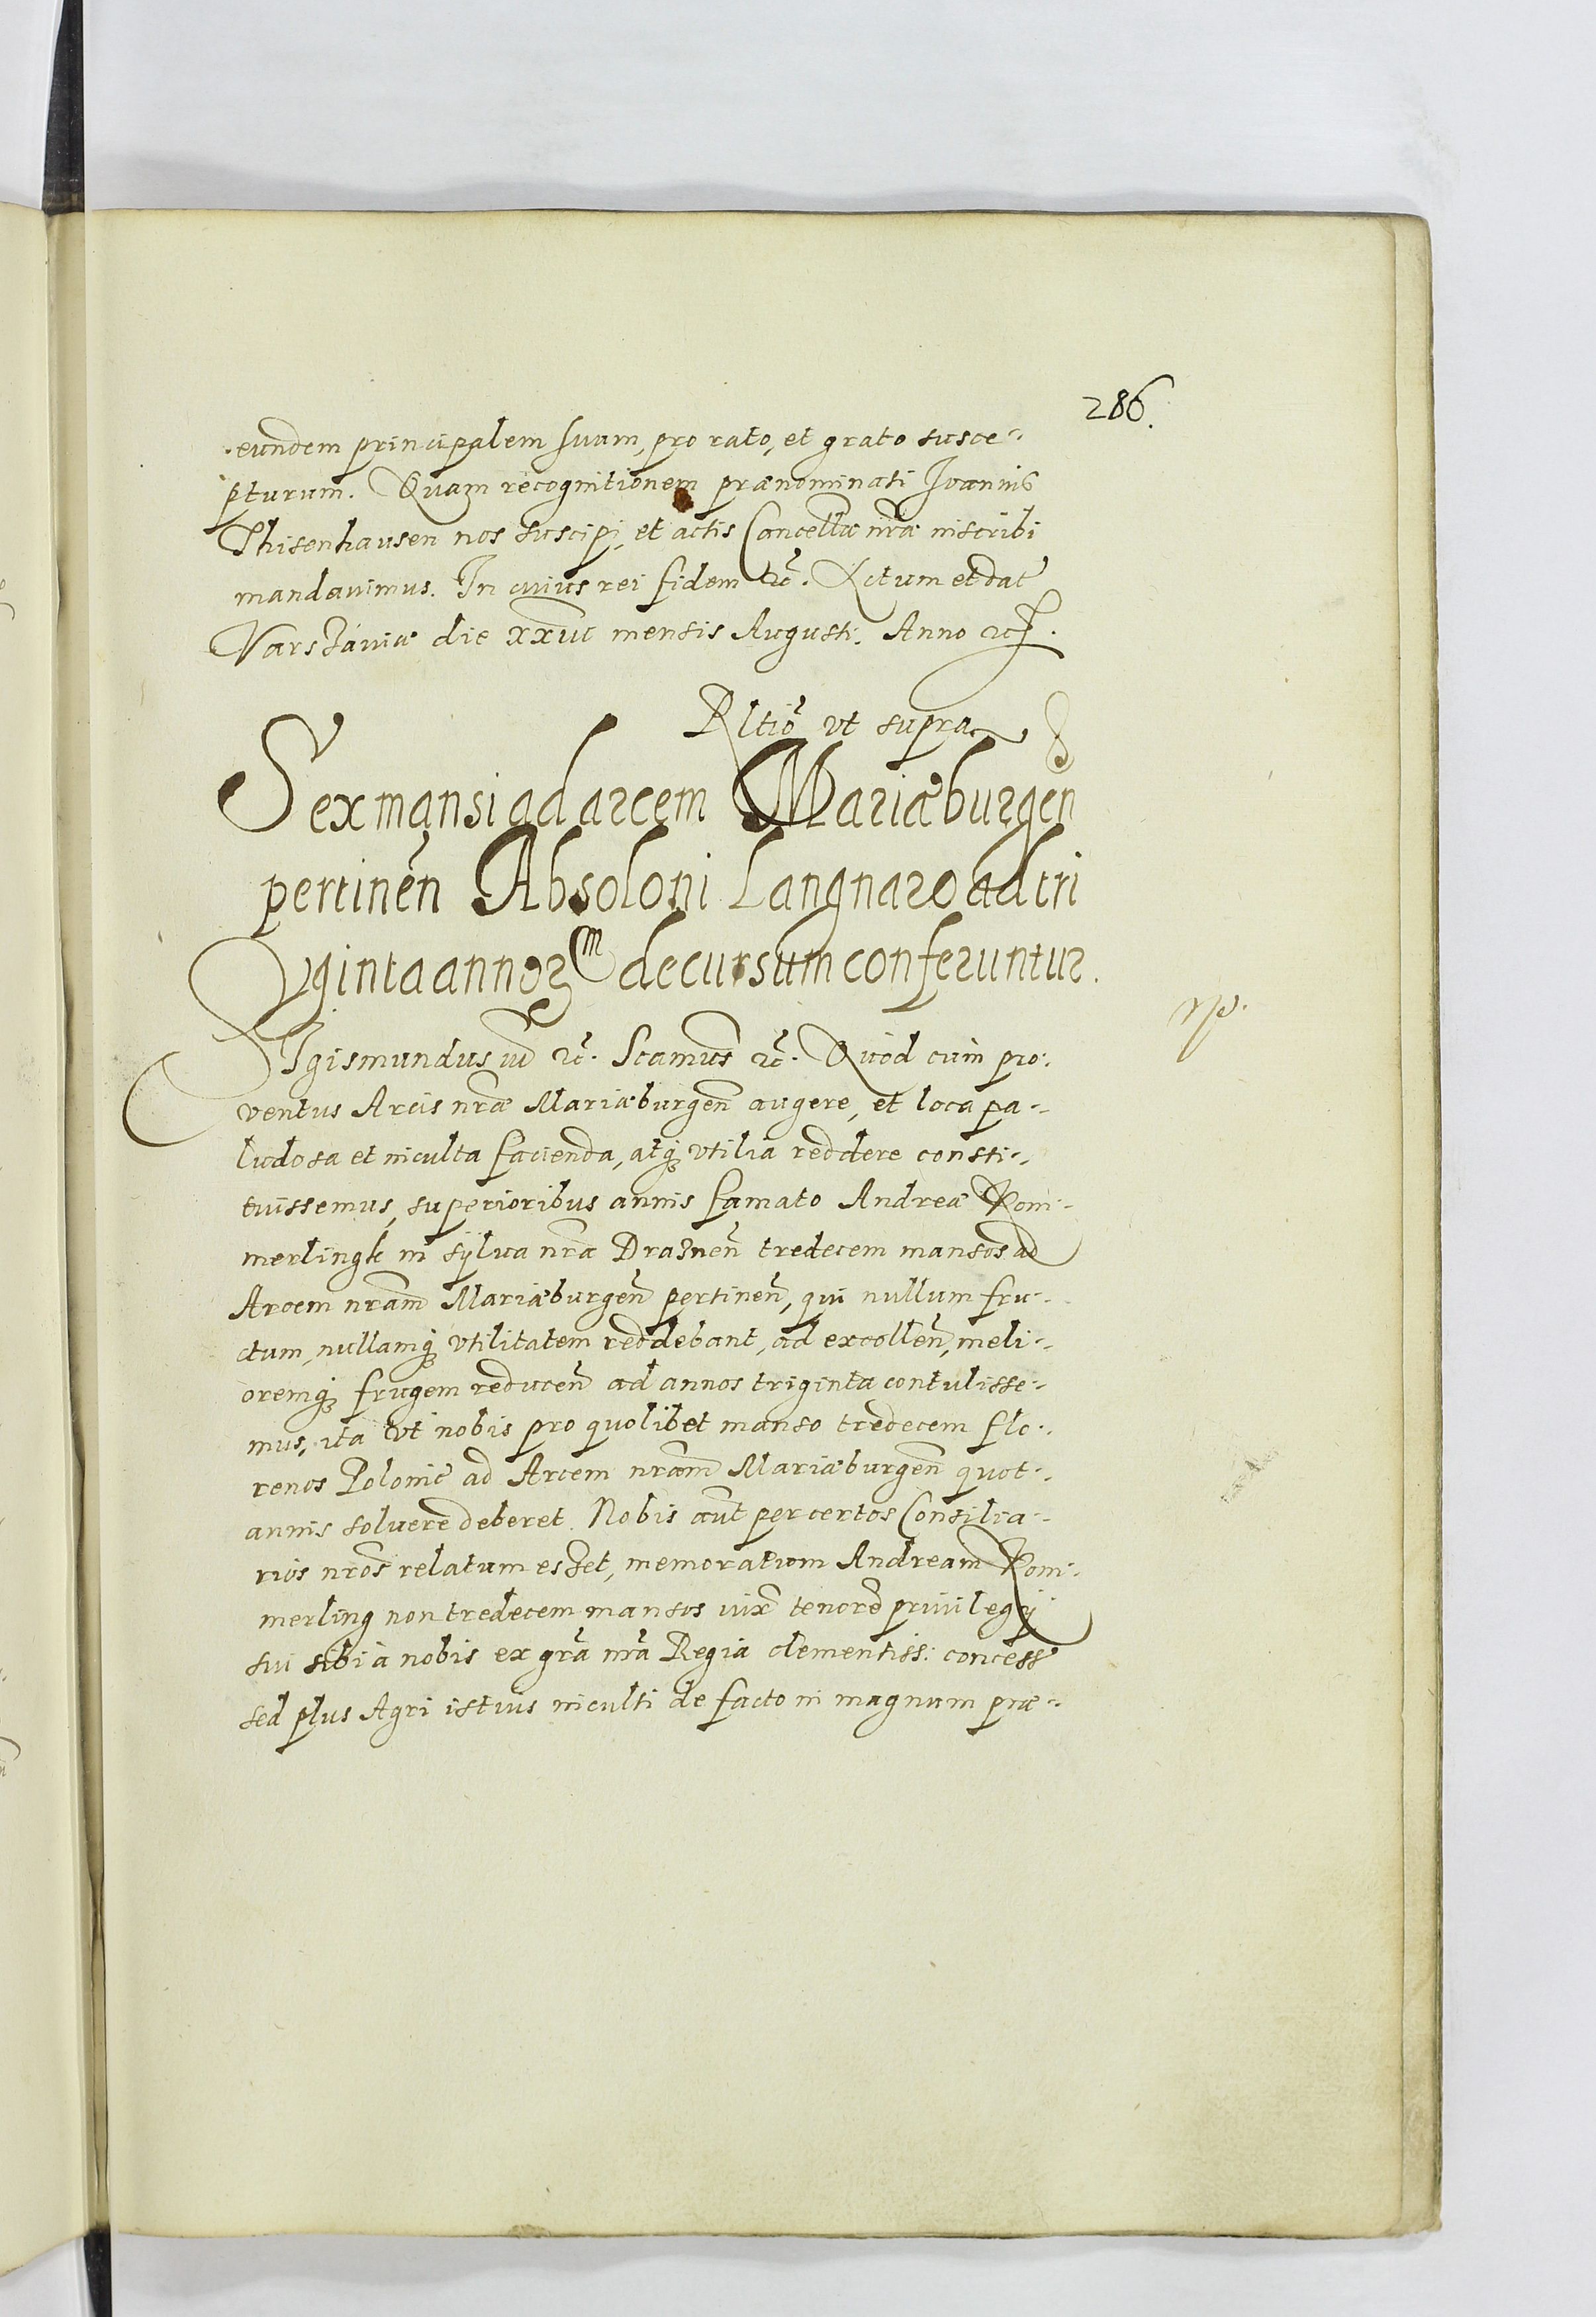 286.
eundem principalem suum, pro rato, et grato susce-
pturum. Quam recognitionem prænominati Joannis
Thisenhausen nos suscipi, et actis Cancellæ nr̃æ inscribi
mandavimus. In cuius rei fidem etc̃. Actum et dat̃
Varszaviæ die mensis Augusti. Anno
Rltiõ vt supra.
Sex mansi ad arcem Mariæburgen
pertineñ Absoloni Langnaro ad tri
ginta annorum decursum conferuntur.
Sigismundus etc̃. Scamus etc̃. Quod cum pro-
ventus Arcis nr̃æ Mariæburgeñ augere, et loca pa-
ludosa et inculta facienda, atq; vtilia reddere consti-
tuissemus, superioribus annis famato Andreæ Kom-
merlingk in sylva nr̃a Drasneñ tredecem mansos ad
Arcem nr̃am Mariæburgeñ pertineñ, qui nullum fru-
ctum, nullamq; vtilitatem reddebant, ad excolleñ, meli-
oremq; frugem reduceñ ad annos triginta contulisse-
mus, ita vt nobis pro quolibet manso tredecem flo-
renos Polonic̃ ad Arcem nr̃am Mariæburgeñ quot-
annis solvere deberet. Nobis aũt per certos Consilia-
rios nr̃os relatum esset, memoratum Andream Kom-
merling non tredecem mansos iuxã tenorẽ privilegij
sui sibi à nobis ex gr̃a nr̃a Regia clementiss: concess̃
sed plus Agri istius inculti de facto in magnum præ-